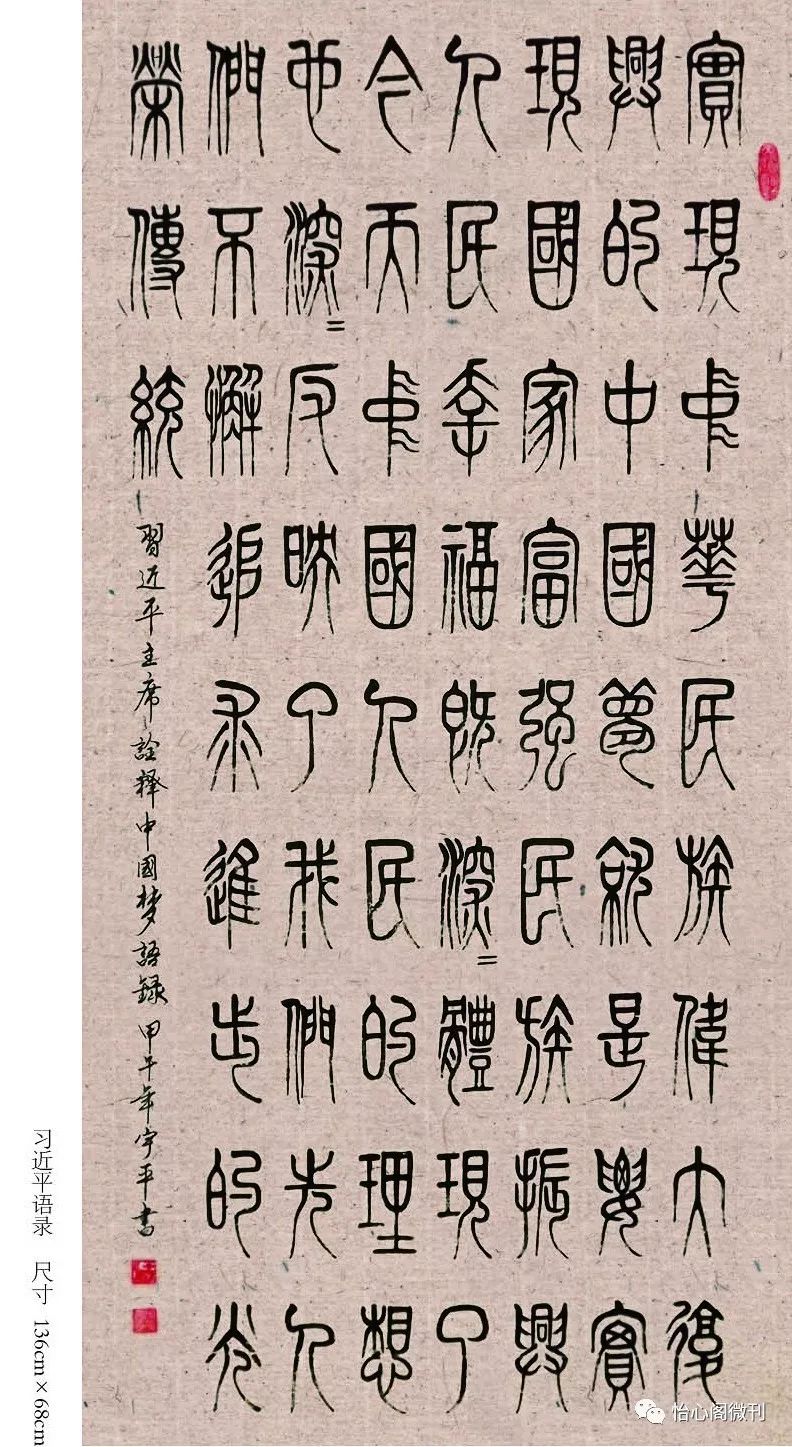 實現中華民族偉大復
興的中國夢就是要實
現國家富强民族振興
人民幸福既深=體現了
今天中國人民的理想
也深=反映了我們先人
們不懈追求進步的光
榮傳統
習近平主席詮釋中國梦語録 甲午年宇平書
习近平语录 尺寸 136cm×68cm
怡心阁微刊